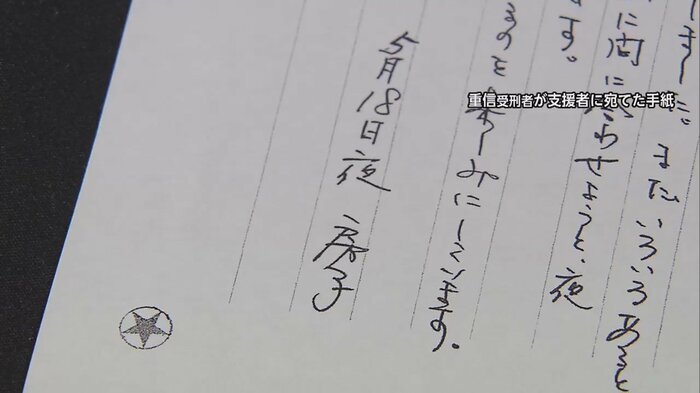 重信受刑者が支援者に宛てた手紙
またいろいろあると
に間に合わせようと、夜
ます。
るのを楽しみにしています。
5月18日夜 房子